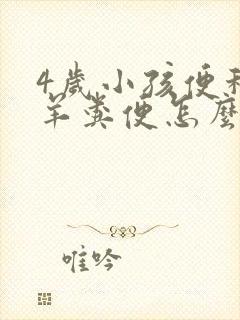 4歲小孩便秘
羊糞便怎麼
唯吟